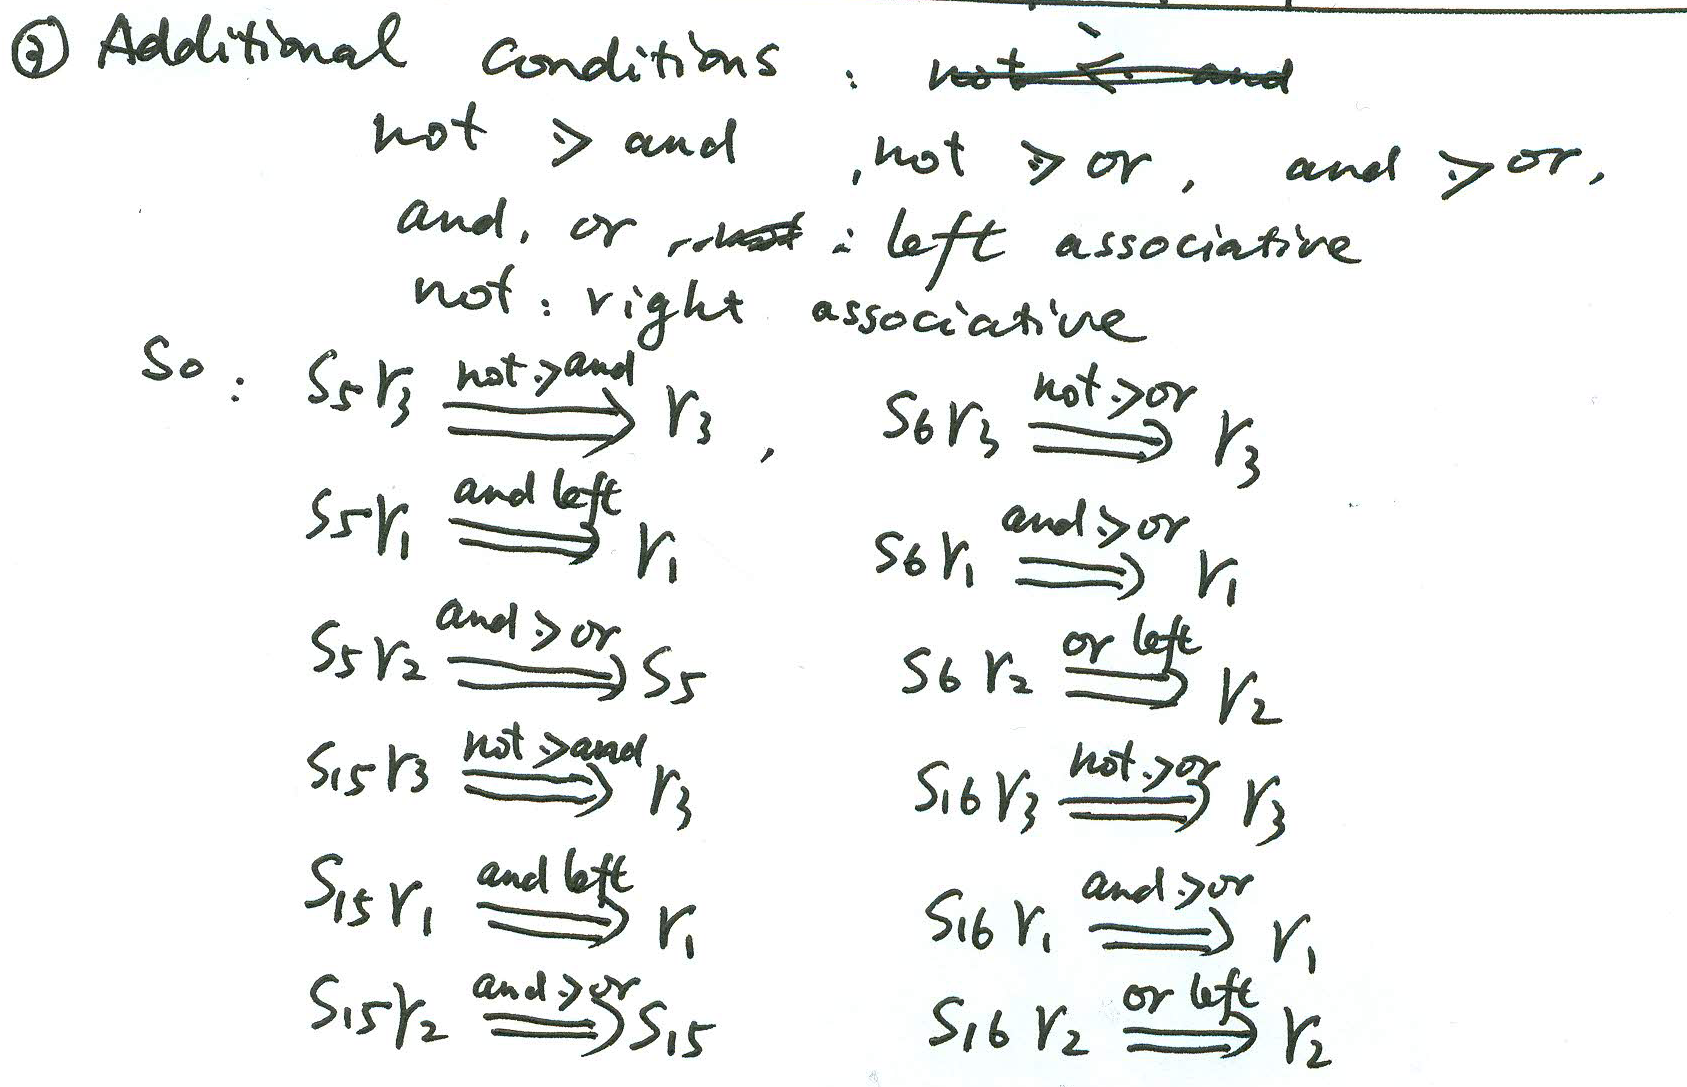 ② Additional Conditions : not <· and
not ·> and , not ·> or , and ·> or ,
and, or : left associative
not : right associative
So : S5r3 not·>and ⟹ r3 , S6r3 not·>or ⟹ r3
S5r1 and left ⟹ r1 S6r1 and·>or ⟹ r1
S5r2 and·>or ⟹ S5 S6r2 or left ⟹ r2
S15r3 not·>and ⟹ r3 S16r3 not·>or ⟹ r3
S15r1 and left ⟹ r1 S16r1 and·>or ⟹ r1
S15r2 and·>or ⟹ S15 S16r2 or left ⟹ r2